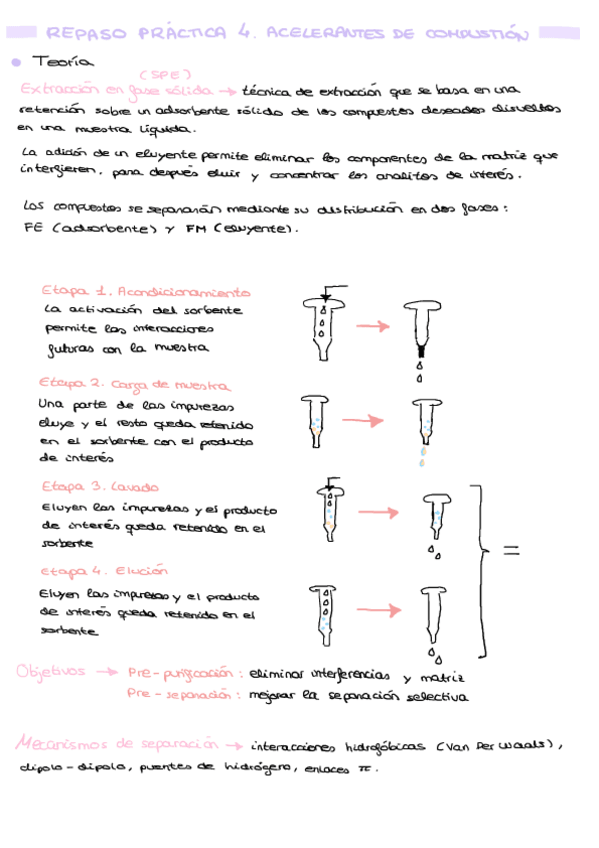 REPASO PRÁCTICA 4. ACELERANTES DE COMBUSTIÓN
Teoría
(SPE)
Extracción en fase sólida → técnica de extracción que se basa en una
retención sobre un adsorbente sólido de los compuestos deseados disueltos
en una muestra líquida.
La adición de un eluyente permite eliminar los componentes de la matriz que
interfieren, para después eluir y concentrar los analitos de interés.
Los compuestos se separarán mediante su distribución en dos fases:
FE (adsorbente) y FM (eluyente).
Etapa 1. Acondicionamiento
La activación del sorbente
permite las interacciones
futuras con la muestra
Etapa 2. Carga de muestra
Una parte de las impurezas
eluye y el resto queda retenido
en el sorbente con el producto
de interés
Etapa 3. Lavado
Eluyen las impurezas y el producto
de interés queda retenido en el
sorbente
=
Etapa 4. Elución
Eluyen las impurezas y el producto
de interés queda retenido en el
sorbente
Objetivos → Pre-purificación: eliminar interferencias y matriz
Pre-separación: mejorar la separación selectiva
Mecanismos de separación → interacciones hidrofóbicas (Van Der Waals),
dipolo-dipolo, puentes de hidrógeno, enlaces π.